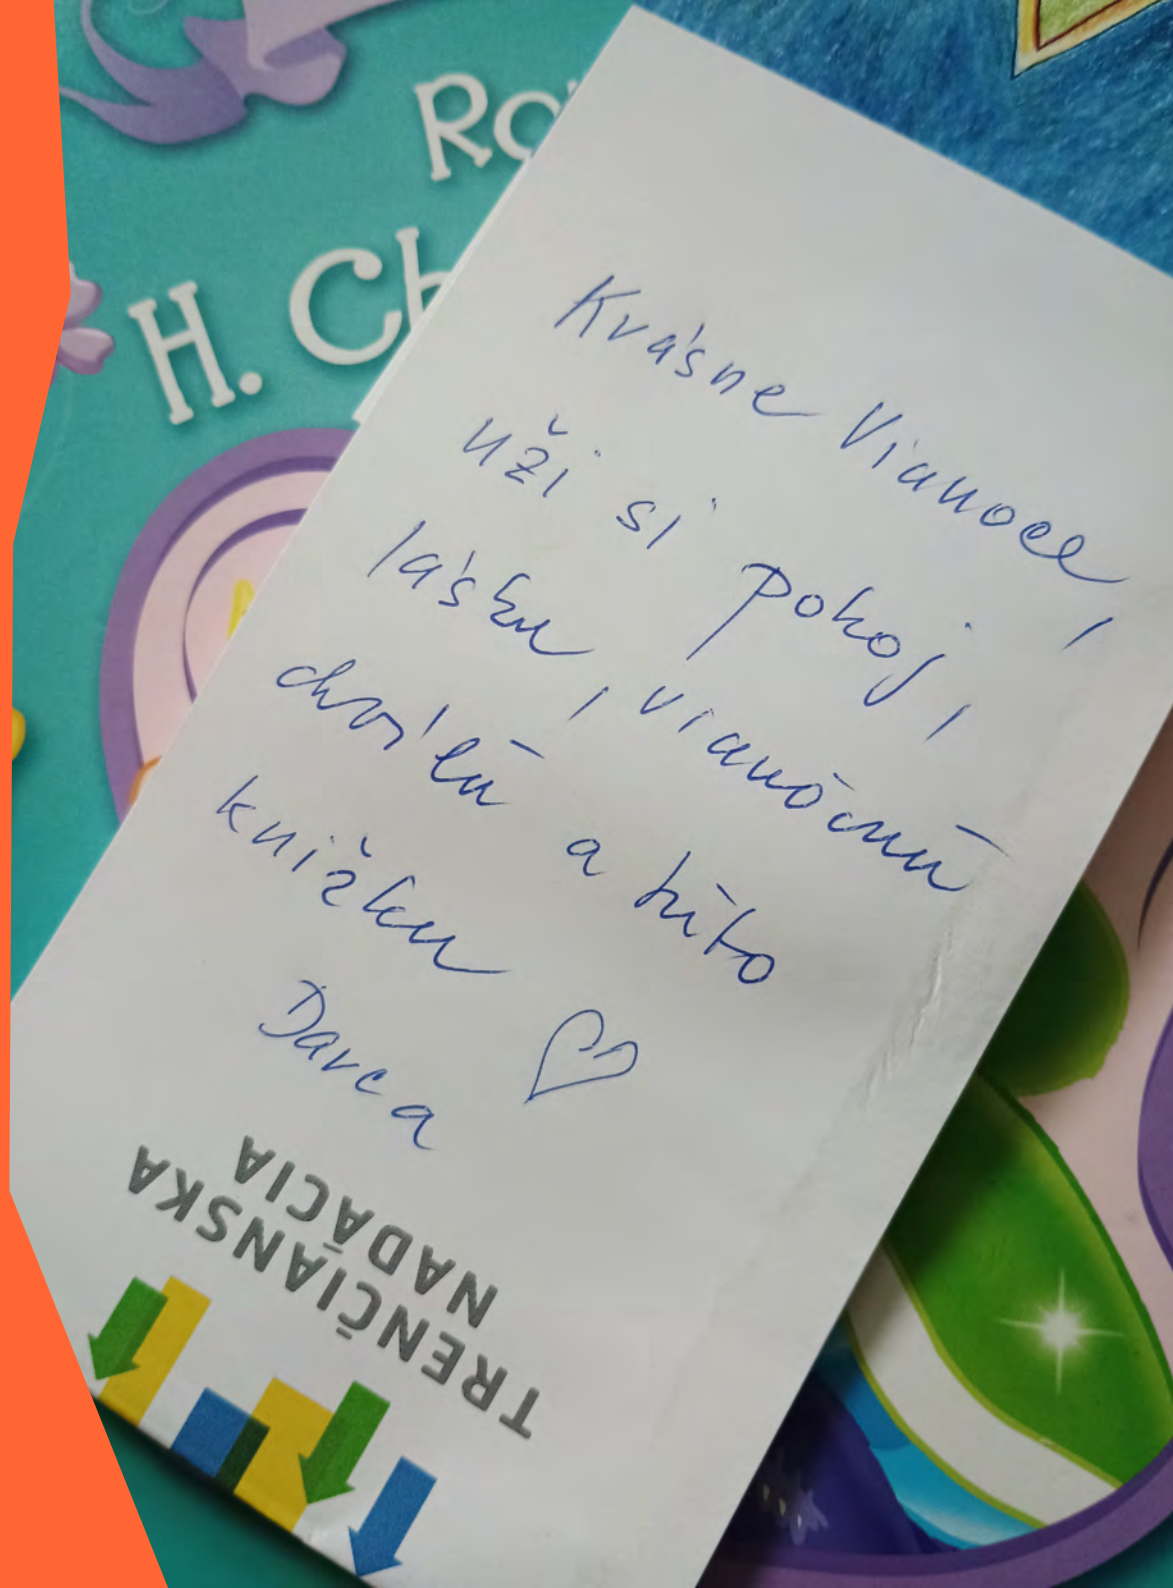 Ro
H. Ch
Krásne Vianoce,
uži si pokoj,
lásku, vianočnú
chvíľu a túto
knižku
Darca ♡
TRENČIANSKA
NADÁCIA